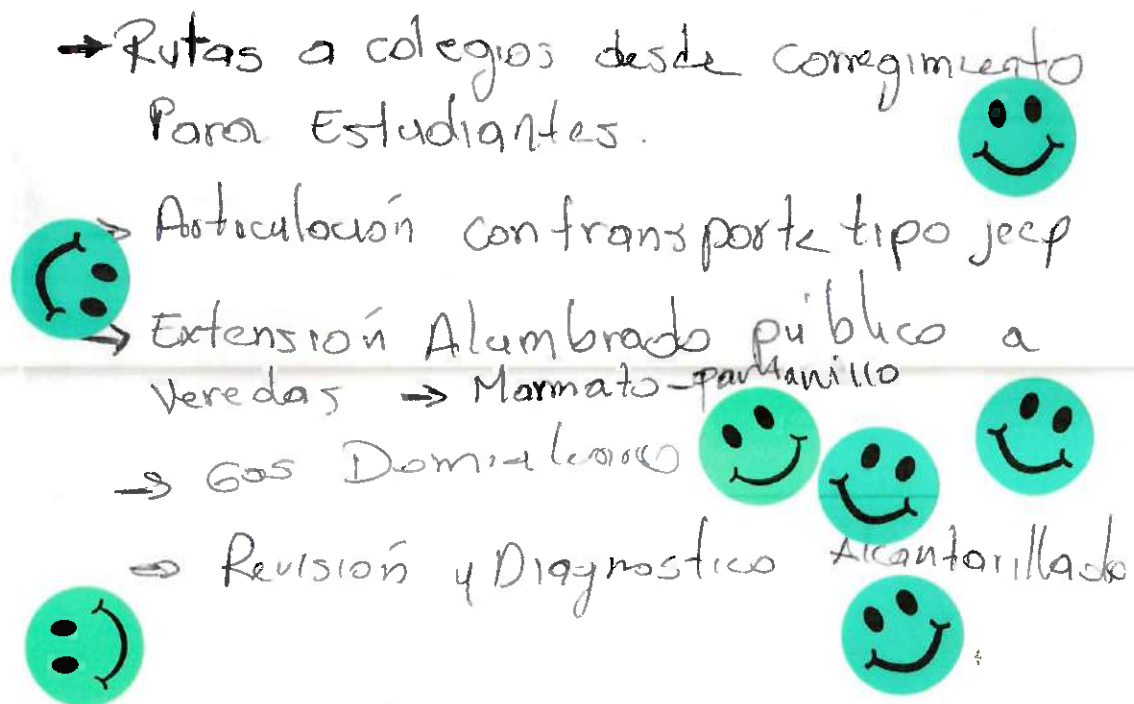 → Rutas a colegios desde corregimiento
Para Estudiantes.
→ Articulación con transporte tipo jeep
→ Extensión Alumbrado público a
Veredas → Marmato-pantanillo
→ Gas Domiciliario
→ Revisión y Diagnostico Alcantarillado